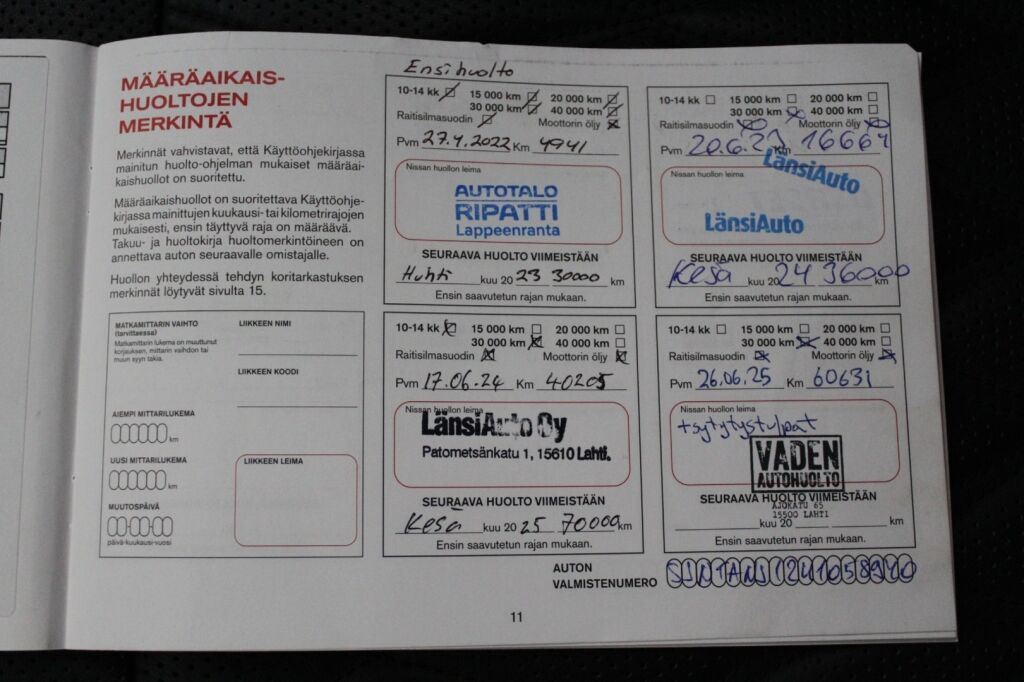 MÄÄRÄAIKAIS-
HUOLTOJEN
MERKINTÄ
Merkinnät vahvistavat, että Käyttöohjekirjassa
mainitun huolto-ohjelman mukaiset määräai-
kaishuollot on suoritettu.
Määräaikaishuollot on suoritettava Käyttöohje-
kirjassa mainittujen kuukausi- tai kilometrirajojen
mukaisesti, ensin täyttyvä raja on määräävä.
Takuu- ja huoltokirja huoltomerkintöineen on
annettava auton seuraavalle omistajalle.
Huollon yhteydessä tehdyn koritarkastuksen
merkinnät löytyvät sivulta 15.
MATKAMITTARIN VAIHTO
(tarvittaessa)
Matkamittarin lukema on muuttunut
korjauksen, mittarin vaihdon tai
muun syyn takia.
AIEMPI MITTARILUKEMA
km
UUSI MITTARILUKEMA
km
MUUTOSPÄIVÄ
päivä-kuukausi-vuosi
LIIKKEEN NIMI
LIIKKEEN KOODI
LIIKKEEN LEIMA
Ensihuolto
10-14 kk 15 000 km 20 000 km
30 000 km 40 000 km
Raitisilmasuodin Moottorin öljy
Pvm 27.4.2022 Km 4941
Nissan huollon leima
AUTOTALO
RIPATTI
Lappeenranta
SEURAAVA HUOLTO VIIMEISTÄÄN
Huhti kuu 20 23 30000 km
Ensin saavutetun rajan mukaan.
10-14 kk 15 000 km 20 000 km
30 000 km 40 000 km
Raitisilmasuodin Moottorin öljy
Pvm 20.6. Km 16664
Nissan huollon leima
LänsiAuto
LänsiAuto
SEURAAVA HUOLTO VIIMEISTÄÄN
Kesä kuu 20 24 36000 km
Ensin saavutetun rajan mukaan.
10-14 kk 15 000 km 20 000 km
30 000 km 40 000 km
Raitisilmasuodin Moottorin öljy
Pvm 17.06.24 Km 40205
Nissan huollon leima
LänsiAuto Oy
Patometsänkatu 1, 15610 Lahti.
SEURAAVA HUOLTO VIIMEISTÄÄN
Kesä kuu 20 25 70000 km
Ensin saavutetun rajan mukaan.
10-14 kk 15 000 km 20 000 km
30 000 km 40 000 km
Raitisilmasuodin Moottorin öljy
Pvm 26.06.25 Km 60631
Nissan huollon leima
+sytytystulpat
VADEN
AUTOHUOLTO
AJOKATU 65
15500 LAHTI
SEURAAVA HUOLTO VIIMEISTÄÄN
kuu 20 km
Ensin saavutetun rajan mukaan.
AUTON
VALMISTENUMERO
11